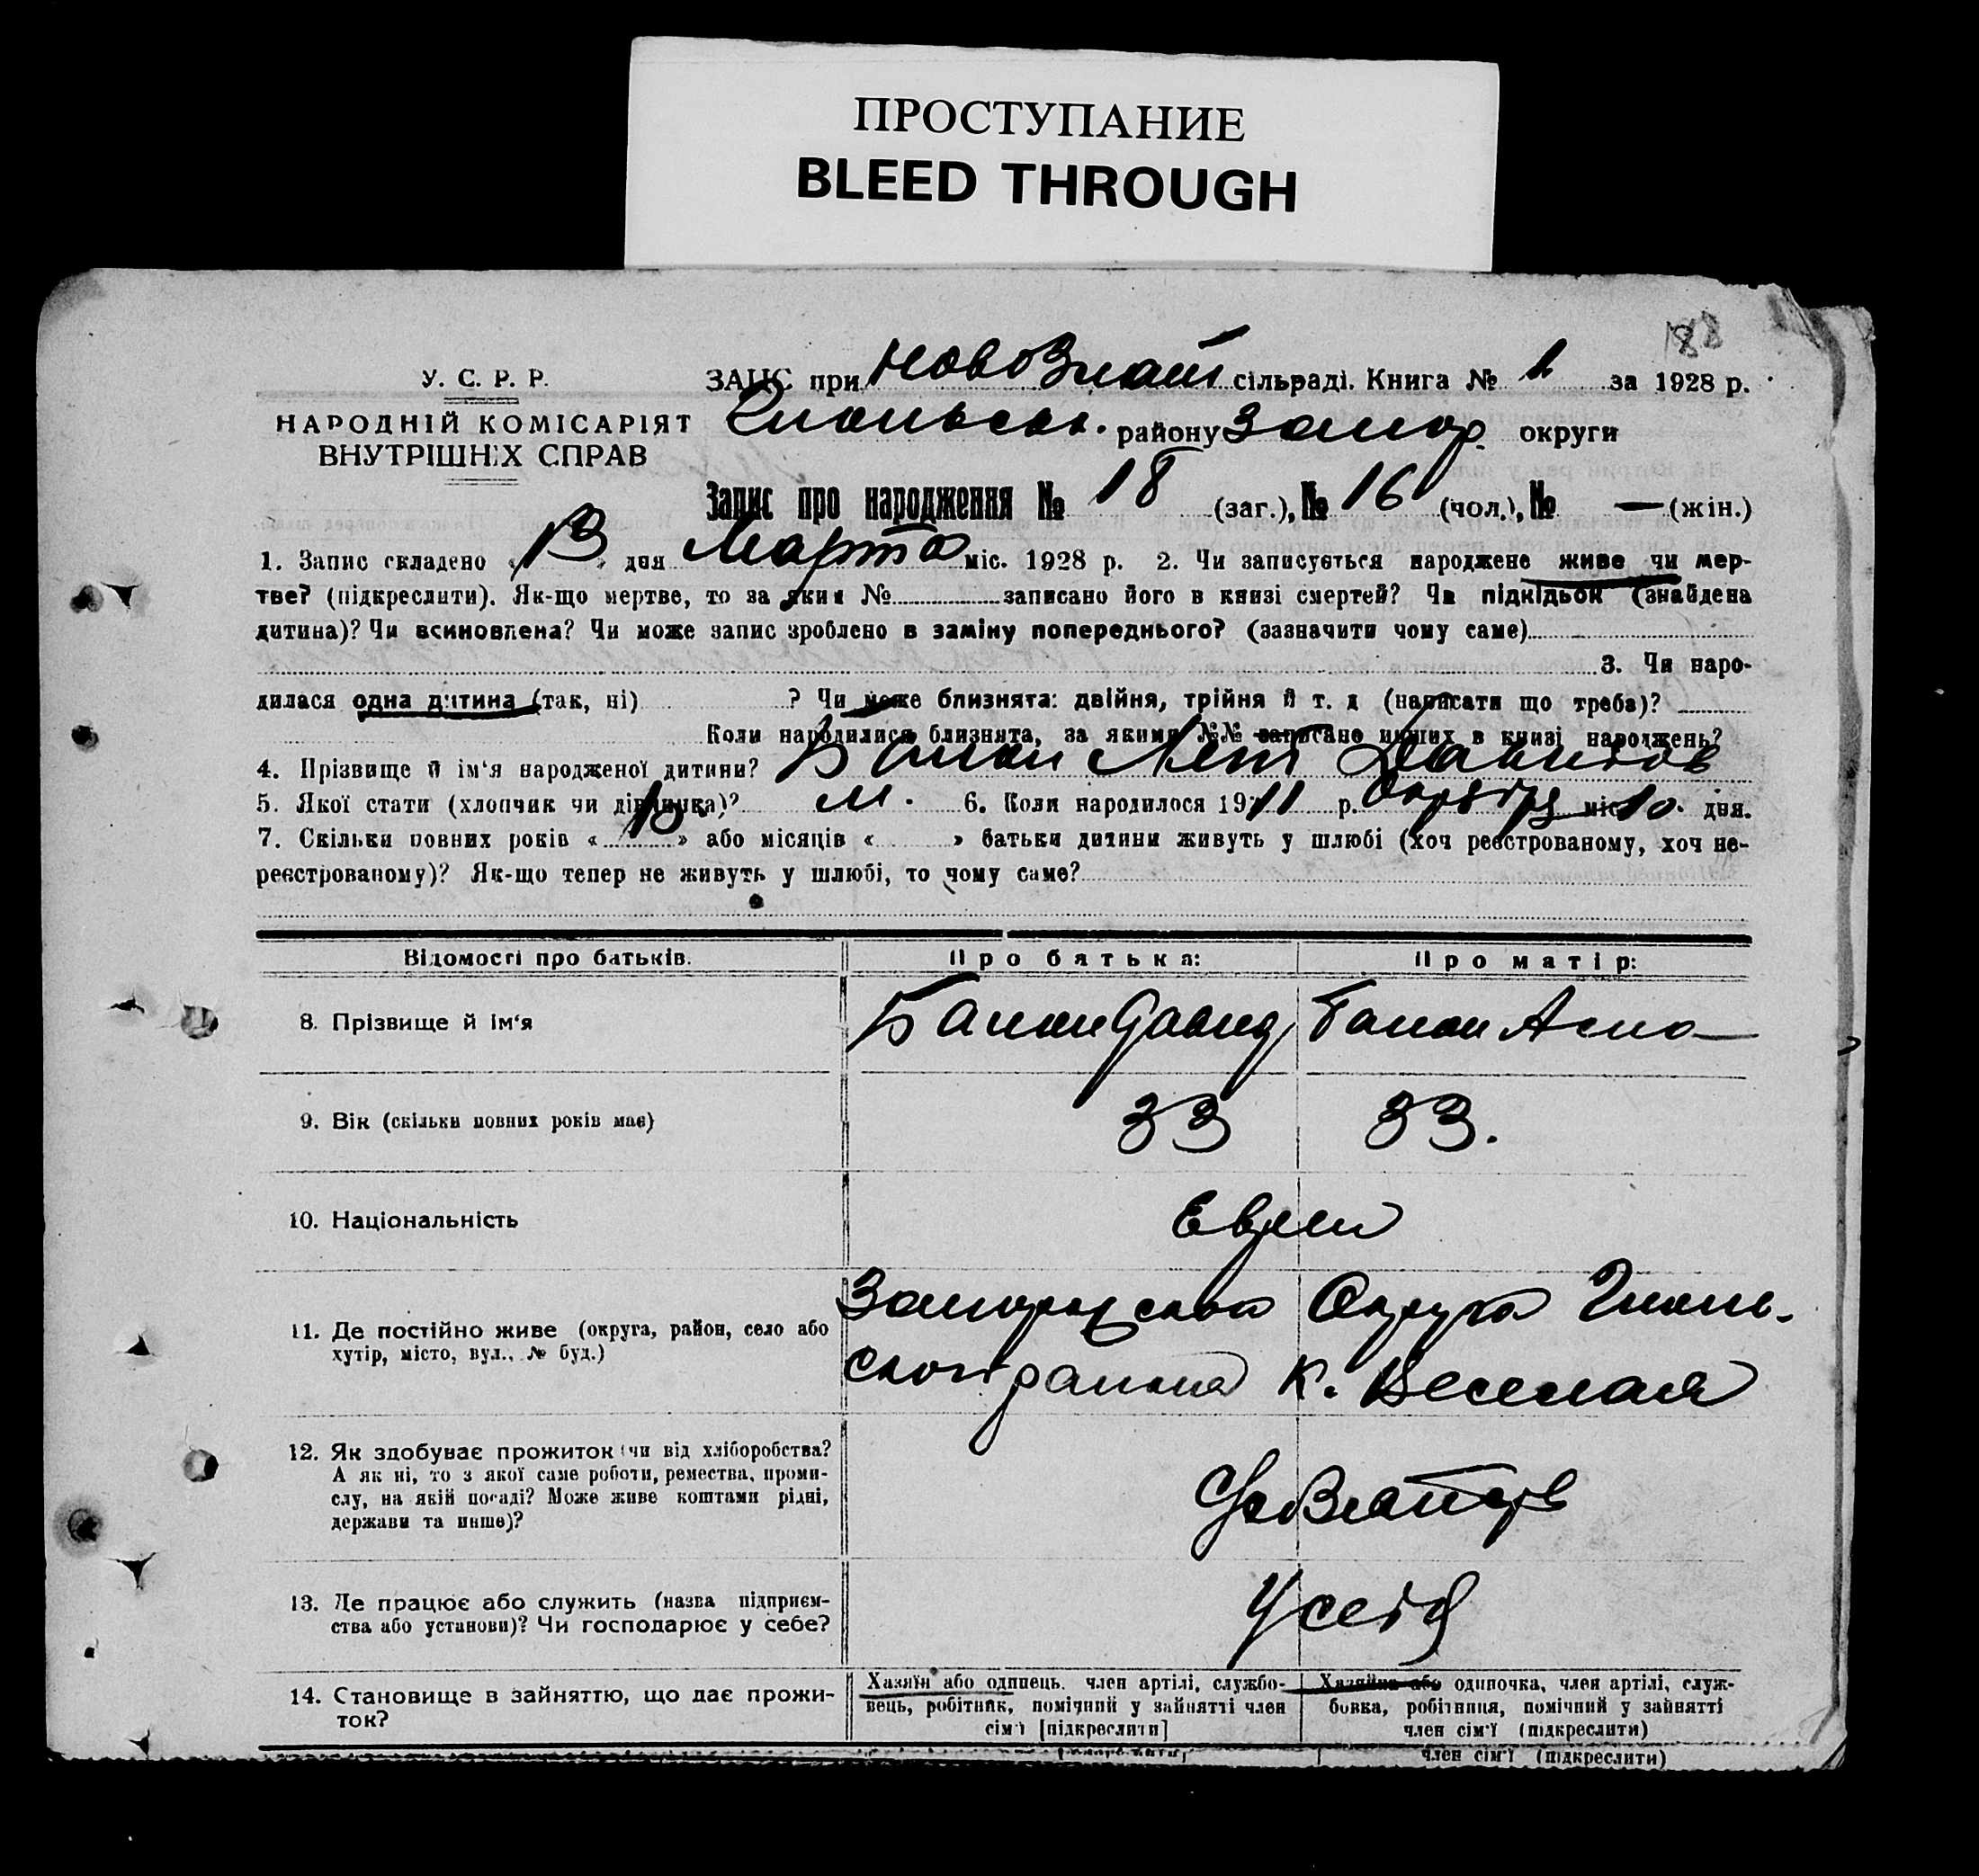 ПРОСТУПАНИЕ
BLEED THROUGH
188
У. С. Р. Р.
НАРОДНІЙ КОМІСАРІЯТ
ВНУТРІШНІХ СПРАВ
ЗАПС при НовоЗлат сільраді. Книга № 1 за 1928 р.
району Запор. округи
Запис про народження № 18 (заг.), № 16 (чол.), № — (жін.)
1. Запис складено « 13 » дня Марта міс. 1928 р. 2. Чи записується народжене живе чи мер-
тве? (підкреслити). Як-що мертве, то за яким № записано його в книзі смертей? Чи підкідьок (знайдена
дитина)? Чи всиновлена? Чи може запис зроблено в заміну попереднього? (зазначити чому саме)
3. Чи наро-
дилася одна дитина (так, ні) ? Чи може близнята: двійня, трійня й т. д (написати що треба)?
Коли народилися близнята, за якими №№ записано инших в книзі народжень?
4. Прізвище й ім'я народженої дитини?
5. Якої стати (хлопчик чи дівчинка)? м. 6. Коли народилося 1911 р. Октября міс 10. дня.
7. Скільки повних років « » або місяців « » батьки дитини живуть у шлюбі (хоч реєстрованому, хоч не-
реєстрованому)? Як-що тепер не живуть у шлюбі, то чому саме?
Відомості про батьків. Про батька: Про матір:
8. Прізвище й ім'я Давид
9. Вік (скільки повних років має) 33 33.
10. Національність Евреи
11. Де постійно живе (округа, район, село або
хутір, місто, вул., № буд.)
Округа
района К. Веселая
12. Як здобуває прожиток (чи від хліборобства?
А як ні, то з якої саме роботи, ремества, проми-
слу, на якій посаді? Може живе коштами рідні,
держави та инше)?
13. Де працює або служить (назва підприєм-
ства або установи)? Чи господарює у себе?
У себя
14. Становище в зайняттю, що дає прожи-
ток?
Хазяїн або одинець. член артілі, службо-
вець, робітник, помічний у зайнятті член
сім'ї [підкреслити]
Хазяйка або одиночка, член артілі, служ-
бовка, робітниця, помічний у зайнятті
член сім'ї (підкреслити)
член сім'ї (підкреслити)